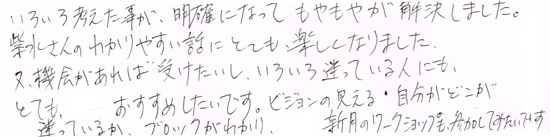 いろいろ考えた事が、明確になって もやもやが解決しました。
紫水さんのわかりやすい話にとても、楽しくなりました.
又、機会があれば受けたいし、いろいろ迷っている人にも、
とても、 おすすめしたいです。ビジョンの見える・自分がどこが
迷っているか、ブロックがわかり、 新月のワークショップも、参加してみたいです